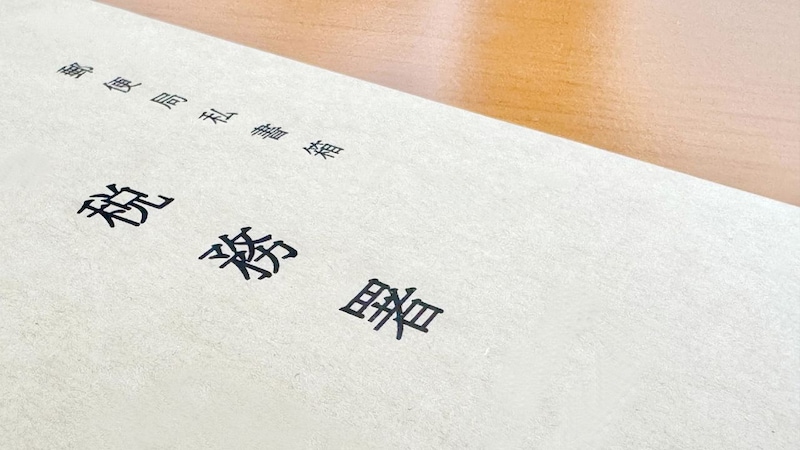 郵便局私書箱
税務署